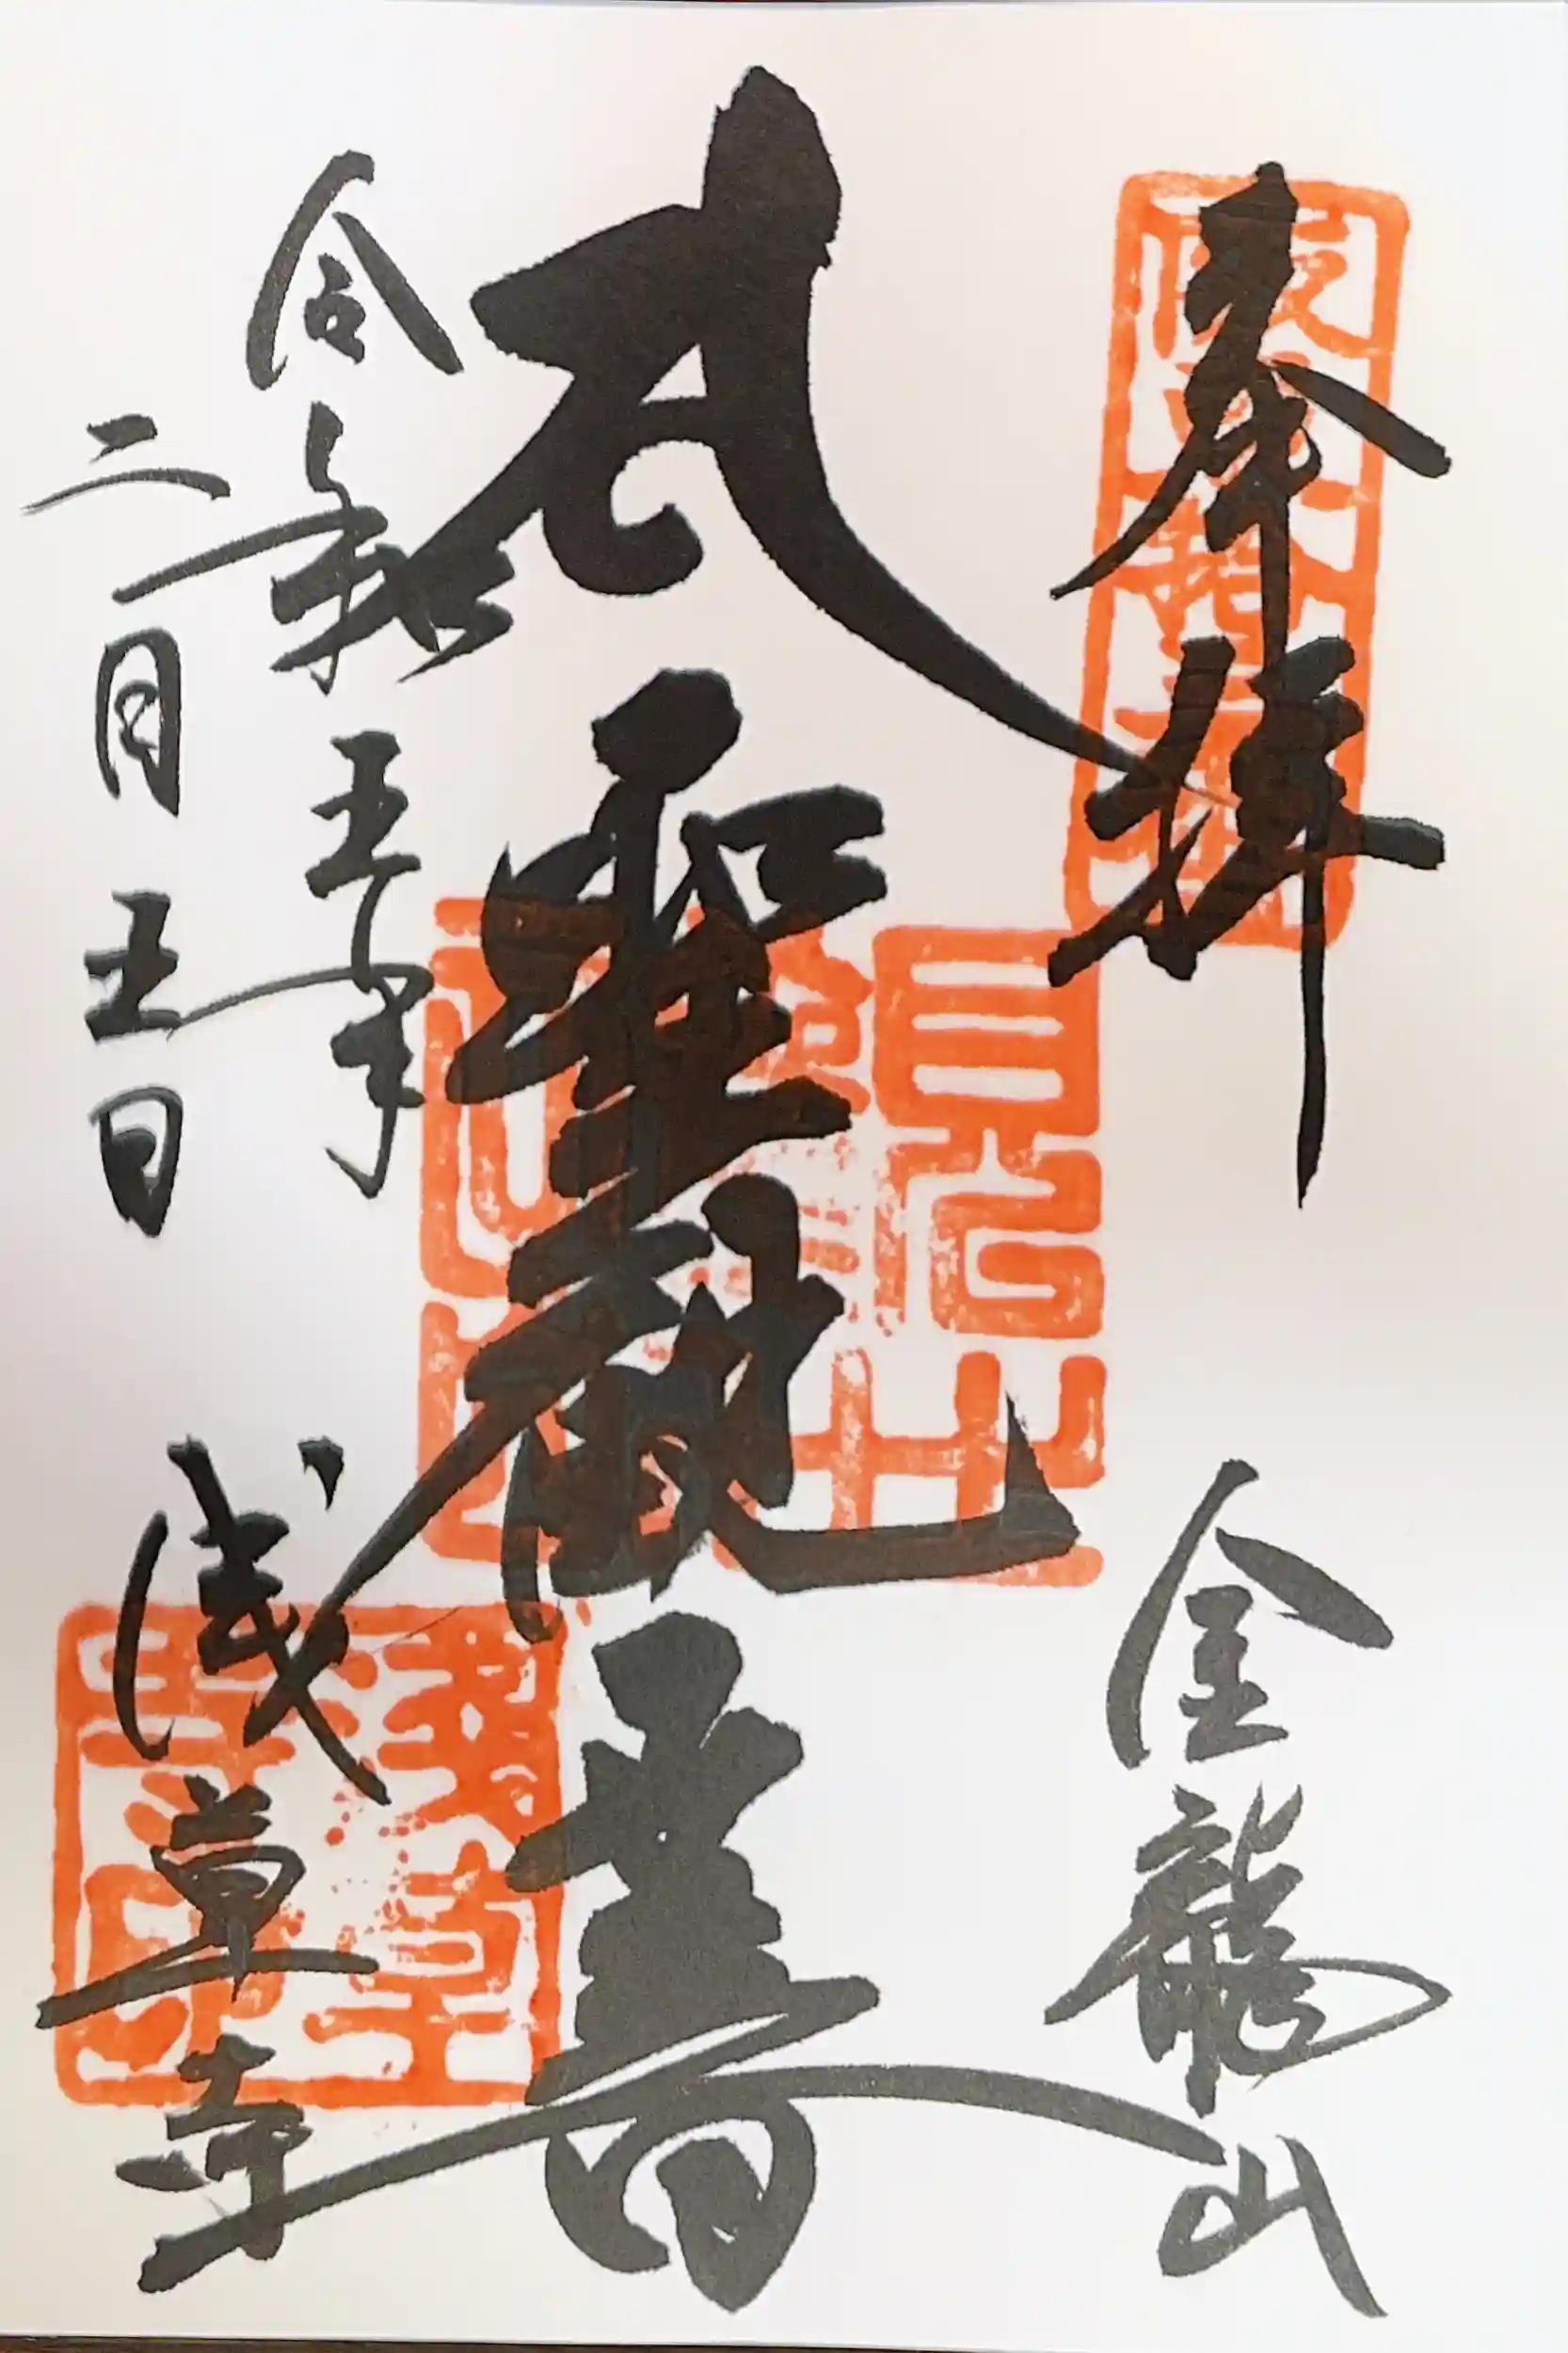 奉拝
金龍山
聖観音
令和五年
二月五日
浅草寺